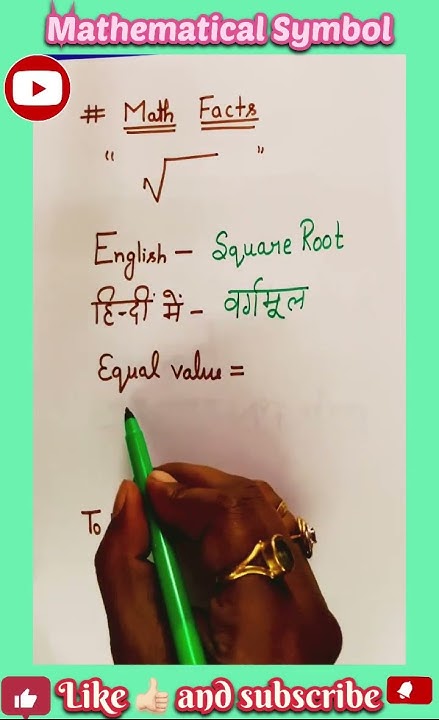 Mathematical Symbol
# Math Facts
" √ "
English - Square Root
हिन्दीं में - वर्गमूल
Equal value =
To
Like 👍🏻 and subscribe